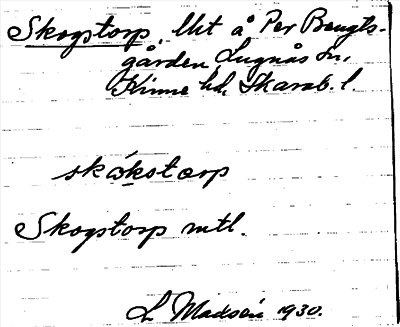 Skogstorp, lht å Per Bengts-
gården, Lugnås sn,
Kinne hd, Skarab. l.
skókstorp
Skogstorp mtl.
L Madsén 1930.